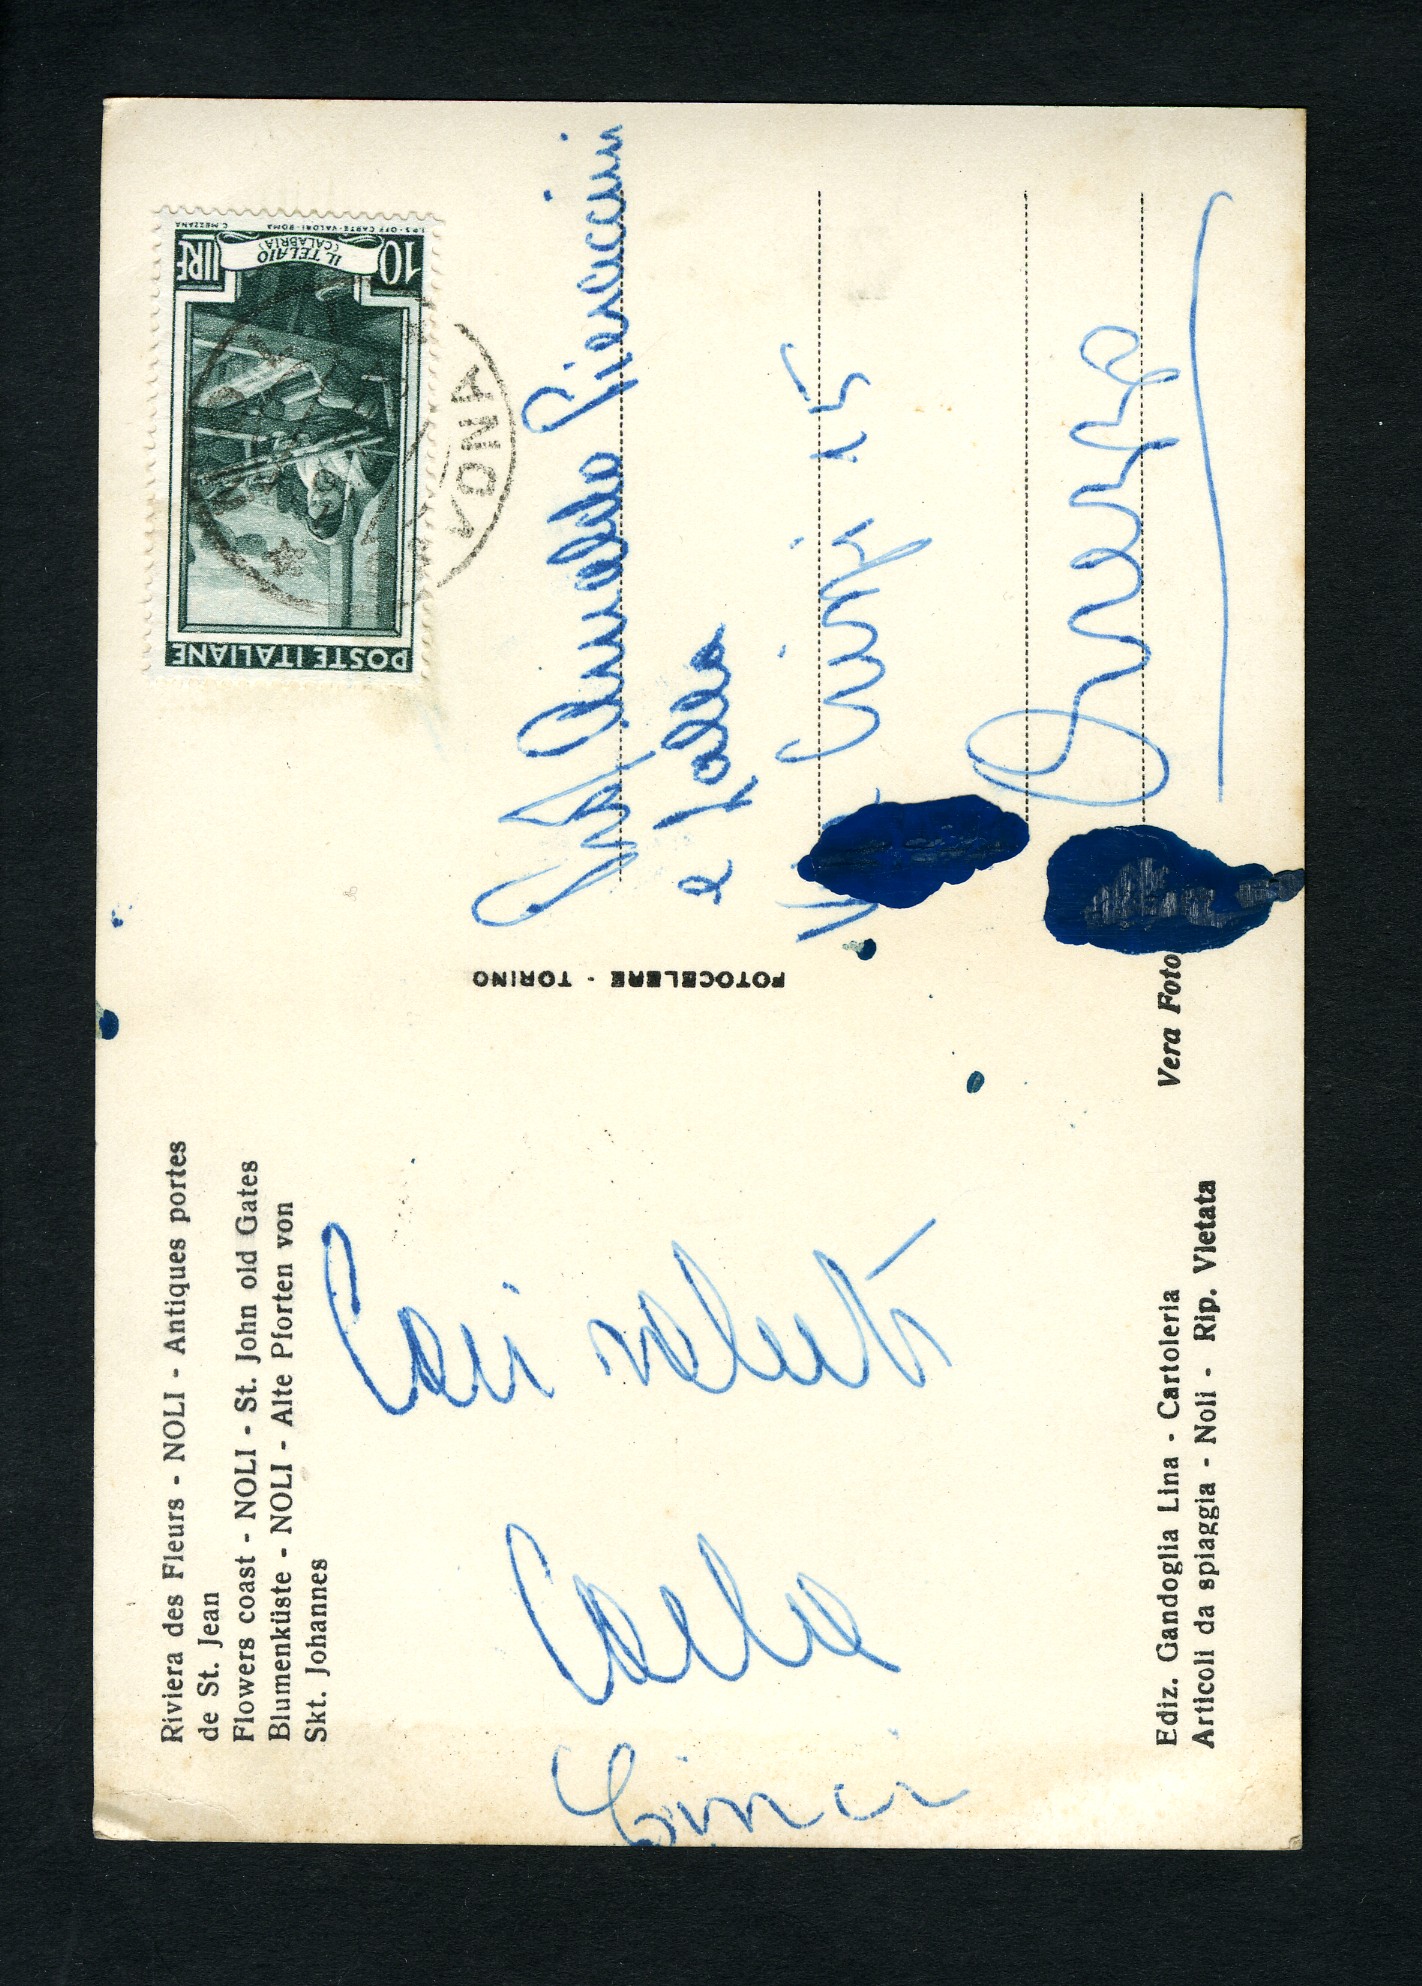 Riviera des Fleurs - NOLI - Antiques portes
de St. Jean
Flowers coast - NOLI - St. John old Gates
Blumenküste - NOLI - Alte Pforten von
Skt. Johannes
Cari saluti
Carla
Ediz. Gandoglia Lina - Cartoleria
Articoli da spiaggia - Noli - Rip. Vietata
FOTOCELERE - TORINO
Vera Foto
POSTE ITALIANE
10 LIRE
IL TELAIO
(CALABRIA)
I.P.S. - OFF. CARTE - VALORI - ROMA
C. MEZZANA
Pieraccini
15
Firenze